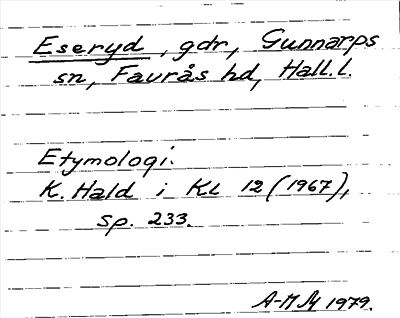 Eseryd, gdr, Gunnarps
sn, Faurås hd, Hall. l.
Etymologi.
K. Hald i KL 12 (1967),
sp. 233.
1979.